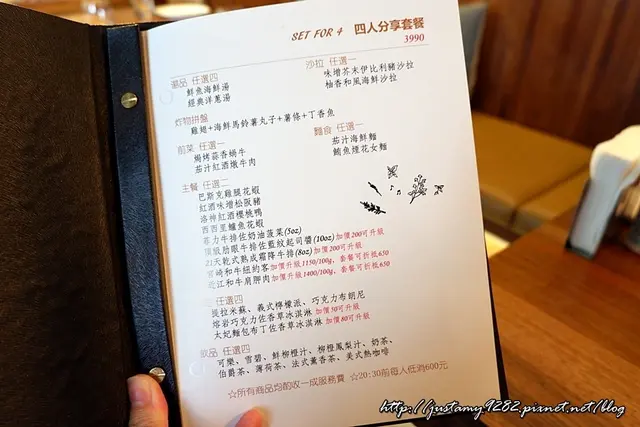 SET FOR 4 四人分享套餐
3990
湯品 任選四
鮮魚海鮮湯
經典洋蔥湯
沙拉 任選一
味增芥末伊比利豬沙拉
柚香和風海鮮沙拉
炸物拼盤
雞翅+海鮮馬鈴薯丸子+薯條+丁香魚
前菜 任選一
焗烤蒜香蝸牛
茄汁紅酒燉牛肉
麵食 任選一
茄汁海鮮麵
鮪魚煙花女麵
主餐 任選二
巴斯克雞腿花蝦
紅酒味增松阪豬
洛神紅酒櫻桃鴨
西西里鱸魚花蝦
菲力牛排佐奶油菠菜(5oz)
頂級肋眼牛排佐藍紋起司醬(10oz)加價200可升級
21天乾式熟成霜降牛排(8oz)加價200可升級
宮崎和牛紐約客加價升級1150/100g, 套餐可折抵650
近江和牛肩胛肉加價升級1400/100g, 套餐可折抵650
任選四
提拉米蘇、義式檸檬派、巧克力布朗尼
熔岩巧克力佐香草冰淇淋 加價50可升級
太妃麵包布丁佐香草冰淇淋 加價80可升級
飲品 任選四
可樂、雪碧、鮮柳橙汁、柳橙鳳梨汁、奶茶、
伯爵茶、薄荷茶、法式薰香茶、美式熱咖啡
☆所有商品均酌收一成服務費 ☆20:30前每人低消600元
http://justamy9282.pixnet.net/blog